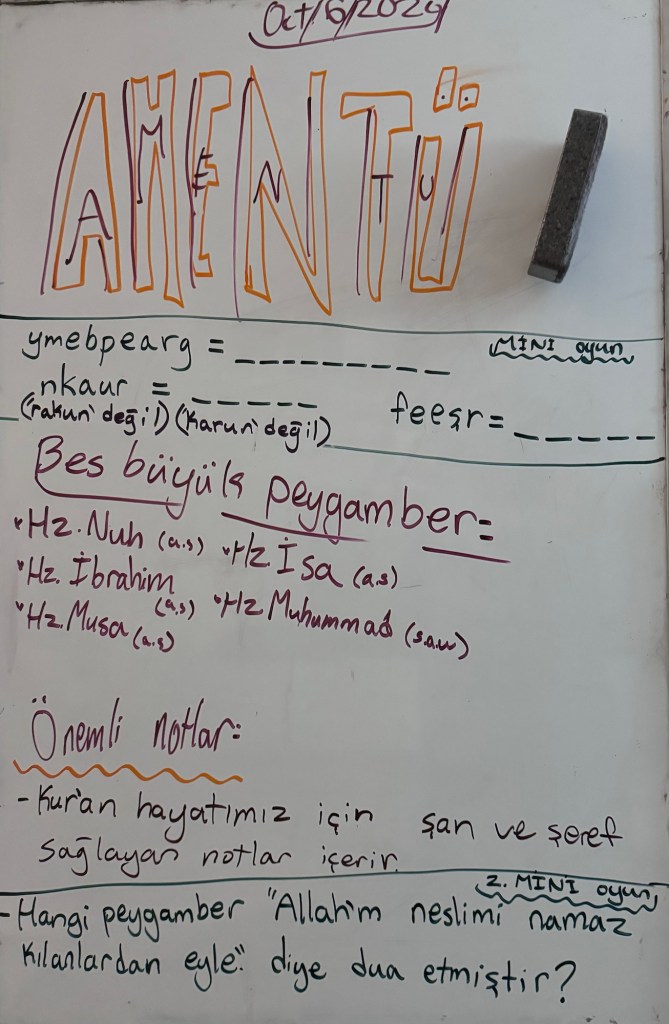 Oct/6/2024
AMENTÜ
AMENTU
MİNİ oyun
ymebpearg = _ _ _ _ _ _ _ _ _
nkaur = _ _ _ _ _
("rakun" değil) ("Karun" değil)
feeşr = _ _ _ _ _
Bes büyük peygamber=
Hz. Nuh (a.s)
Hz. İbrahim (a.s)
Hz. Musa (a.s)
Hz İsa (a.s)
Hz Muhummad (s.a.w)
Önemli notlar:
- Kur'an hayatımız için şan ve şeref
sağlayan notlar içerir.
2. MİNİ oyun
- Hangi peygamber "Allah'ım neslimi namaz
kılanlardan eyle." diye dua etmiştir?